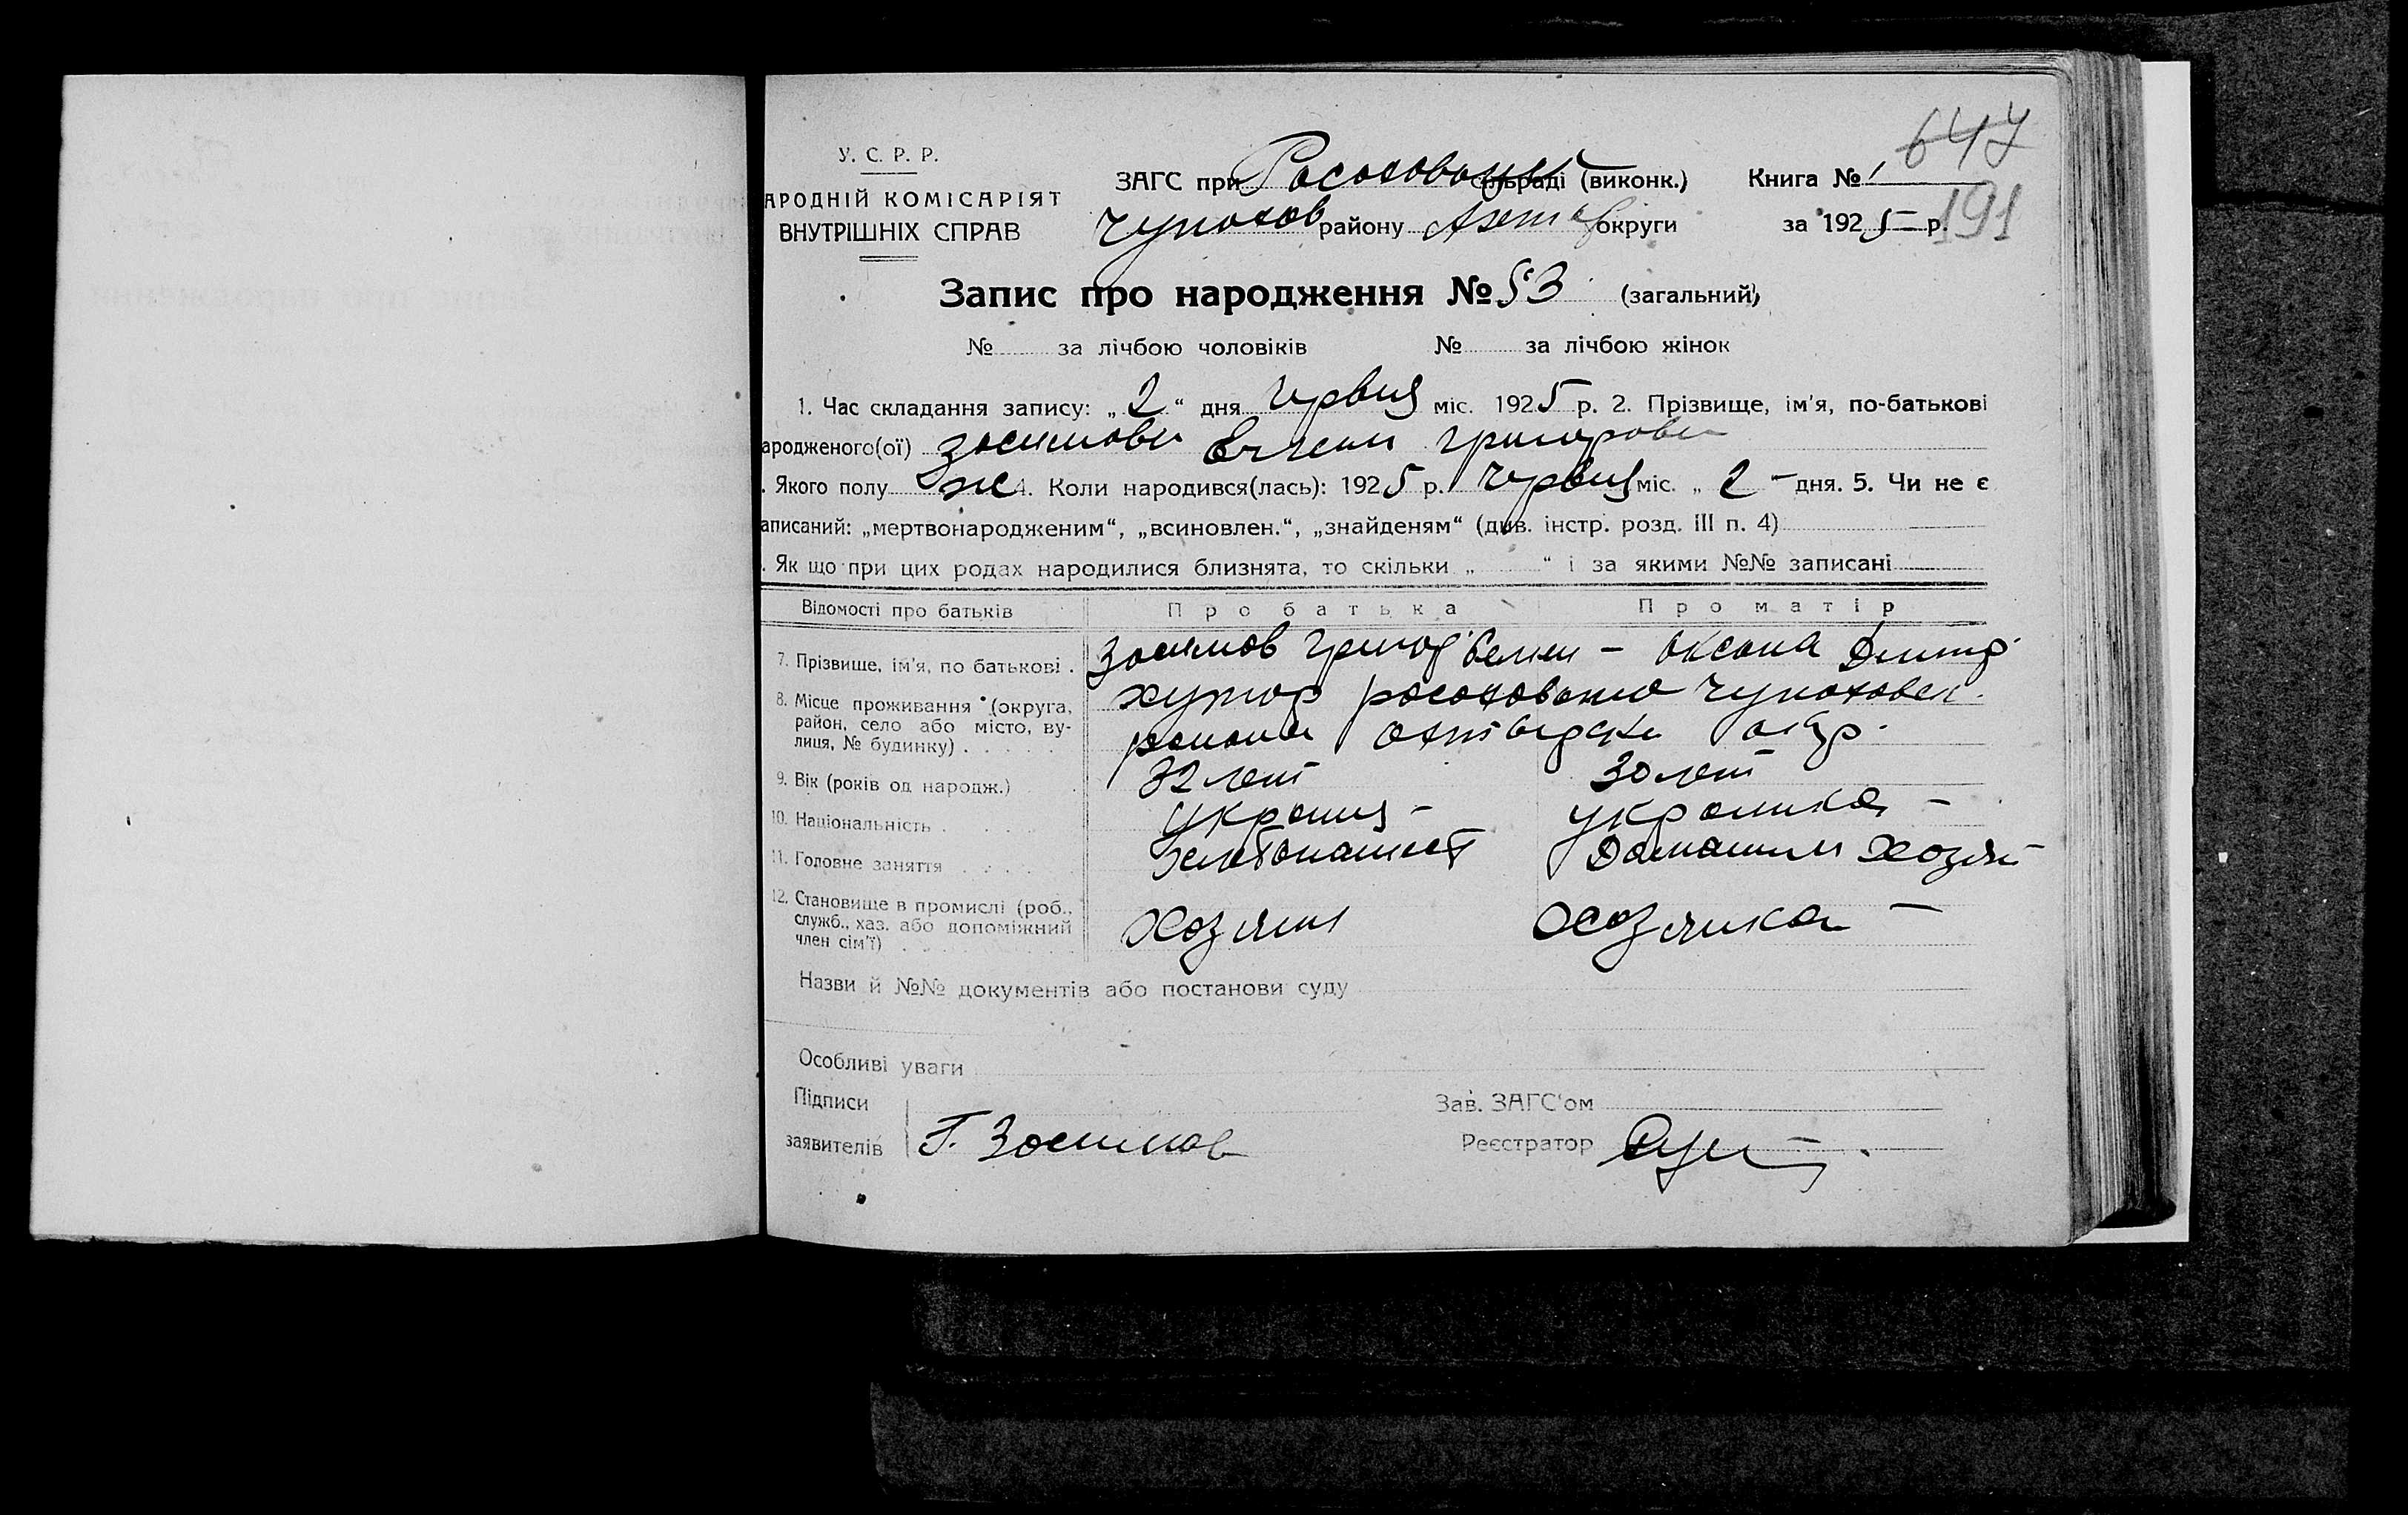 647
191
У. С. Р. Р.
АРОДНІЙ КОМІСАРІЯТ
ВНУТРІШНІХ СПРАВ
ЗАГС при Росоховаи сільраді (виконк.) Книга № 1
Чупохов району Ахт округи за 1925 р.
Запис про народження № 53 (загальний)
№ за лічбою чоловіків № за лічбою жінок
1. Час складання запису: „2“ дня червня міс. 1925 р. 2. Прізвище, ім'я, по-батькові
ародженого(ої) Зосимова григорова
. Якого полу ж 4. Коли народився(лась): 1925 р. червня міс. „2 дня. 5. Чи не є
аписаний: „мертвонародженим“, „всиновлен.“, „знайденям“ (див. інстр. розд. III п. 4)
. Як що при цих родах народилися близнята, то скільки „ “ і за якими №№ записані
Відомості про батьків Про батька Про матір
7. Прізвище, ім'я, по батькові . Зосимов григор - оксана Дмитр
8. Місце проживання (округа, район, село або місто, вулиця, № будинку) . . . . . хутор чупаховск.
района окр.
9. Вік (років од народж.) 32 лет 30 лет
10. Національність . . . . . украинц - украинка -
11. Головне заняття . . . . . хлебопашест Домашнм хозяй
12. Становище в промислі (роб., служб., хаз. або допоміжний член сім'ї) . . . . Хозяин Хозяйка -
Назви й №№ документів або постанови суду
Особливі уваги
Підписи
заявителів Г. Зосимов
Зав. ЗАГС'ом
Реєстратор